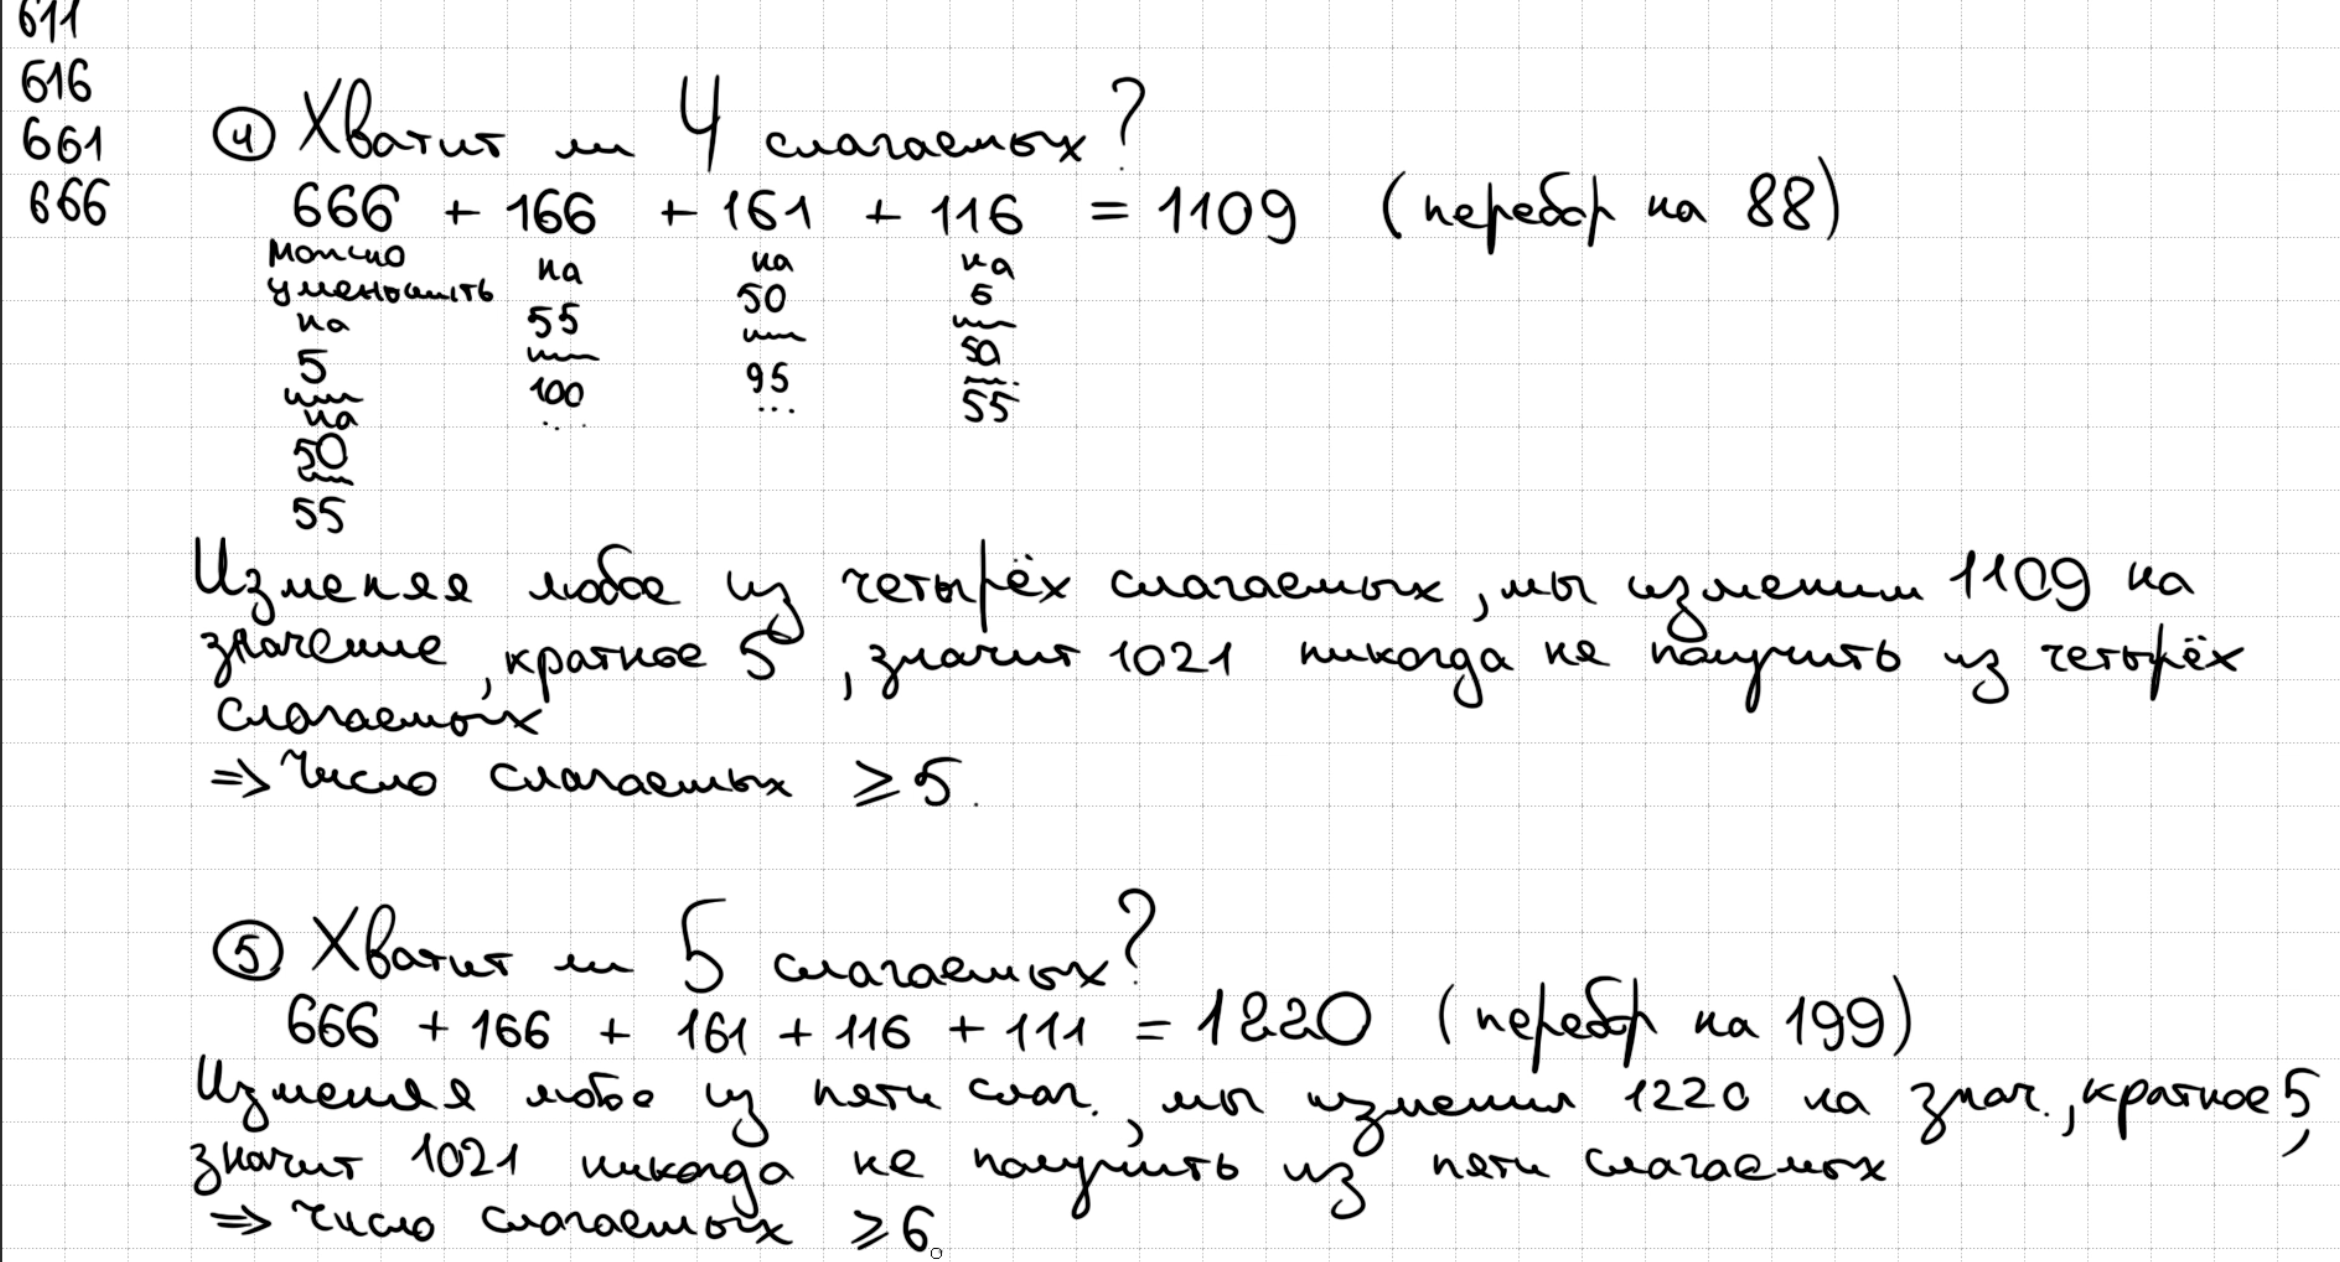 611
616
661
666
④ Хватит ли 4 слагаемых?
666 + 166 + 161 + 116 = 1109 (перебор на 88)
можно уменьшить на 5 или на 50 или 55
на 55 или 100 ...
на 50 или 95 ...
на 5 или 50 или 55
Изменяя любое из четырёх слагаемых, мы изменим 1109 на
значение, кратное 5, значит 1021 никогда не получить из четырёх
слагаемых
⇒ Число слагаемых ≥ 5.
⑤ Хватит ли 5 слагаемых?
666 + 166 + 161 + 116 + 111 = 1220 (перебор на 199)
Изменяя любое из пяти слаг., мы изменим 1220 на знач., кратное 5,
значит 1021 никогда не получить из пяти слагаемых
⇒ число слагаемых ≥ 6